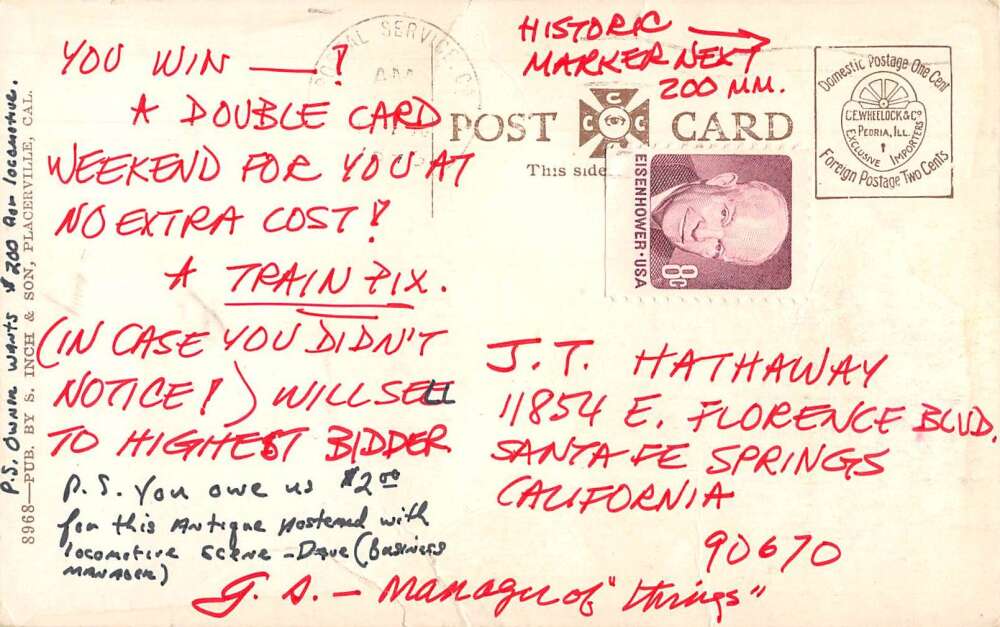 HISTORIC
MARKER NEXT
200 MM.
YOU WIN —!
A DOUBLE CARD
WEEKEND FOR YOU AT
NO EXTRA COST!
A TRAIN PIX.
(IN CASE YOU DIDN'T
NOTICE!) WILL SELL
TO HIGHEST BIDDER
P.S. You owe us $2.00
for this Antique Postcard with
locomotive scene - Dave (Business
MANAGER)
G. S. — Manager of "things"
P.S. Owner wants $200 for locomotive.
8968—PUB. BY S. INCH & SON, PLACERVILLE, CAL.
POSTAL SERVICE
AM
POST CARD
C C C C
This side
Domestic Postage One Cent
C.E. WHEELOCK & Co
PEORIA, ILL.
EXCLUSIVE IMPORTERS
Foreign Postage Two Cents
EISENHOWER·USA
8c
J.T. HATHAWAY
11854 E. FLORENCE BLVD.
SANTA FE SPRINGS
CALIFORNIA
90670